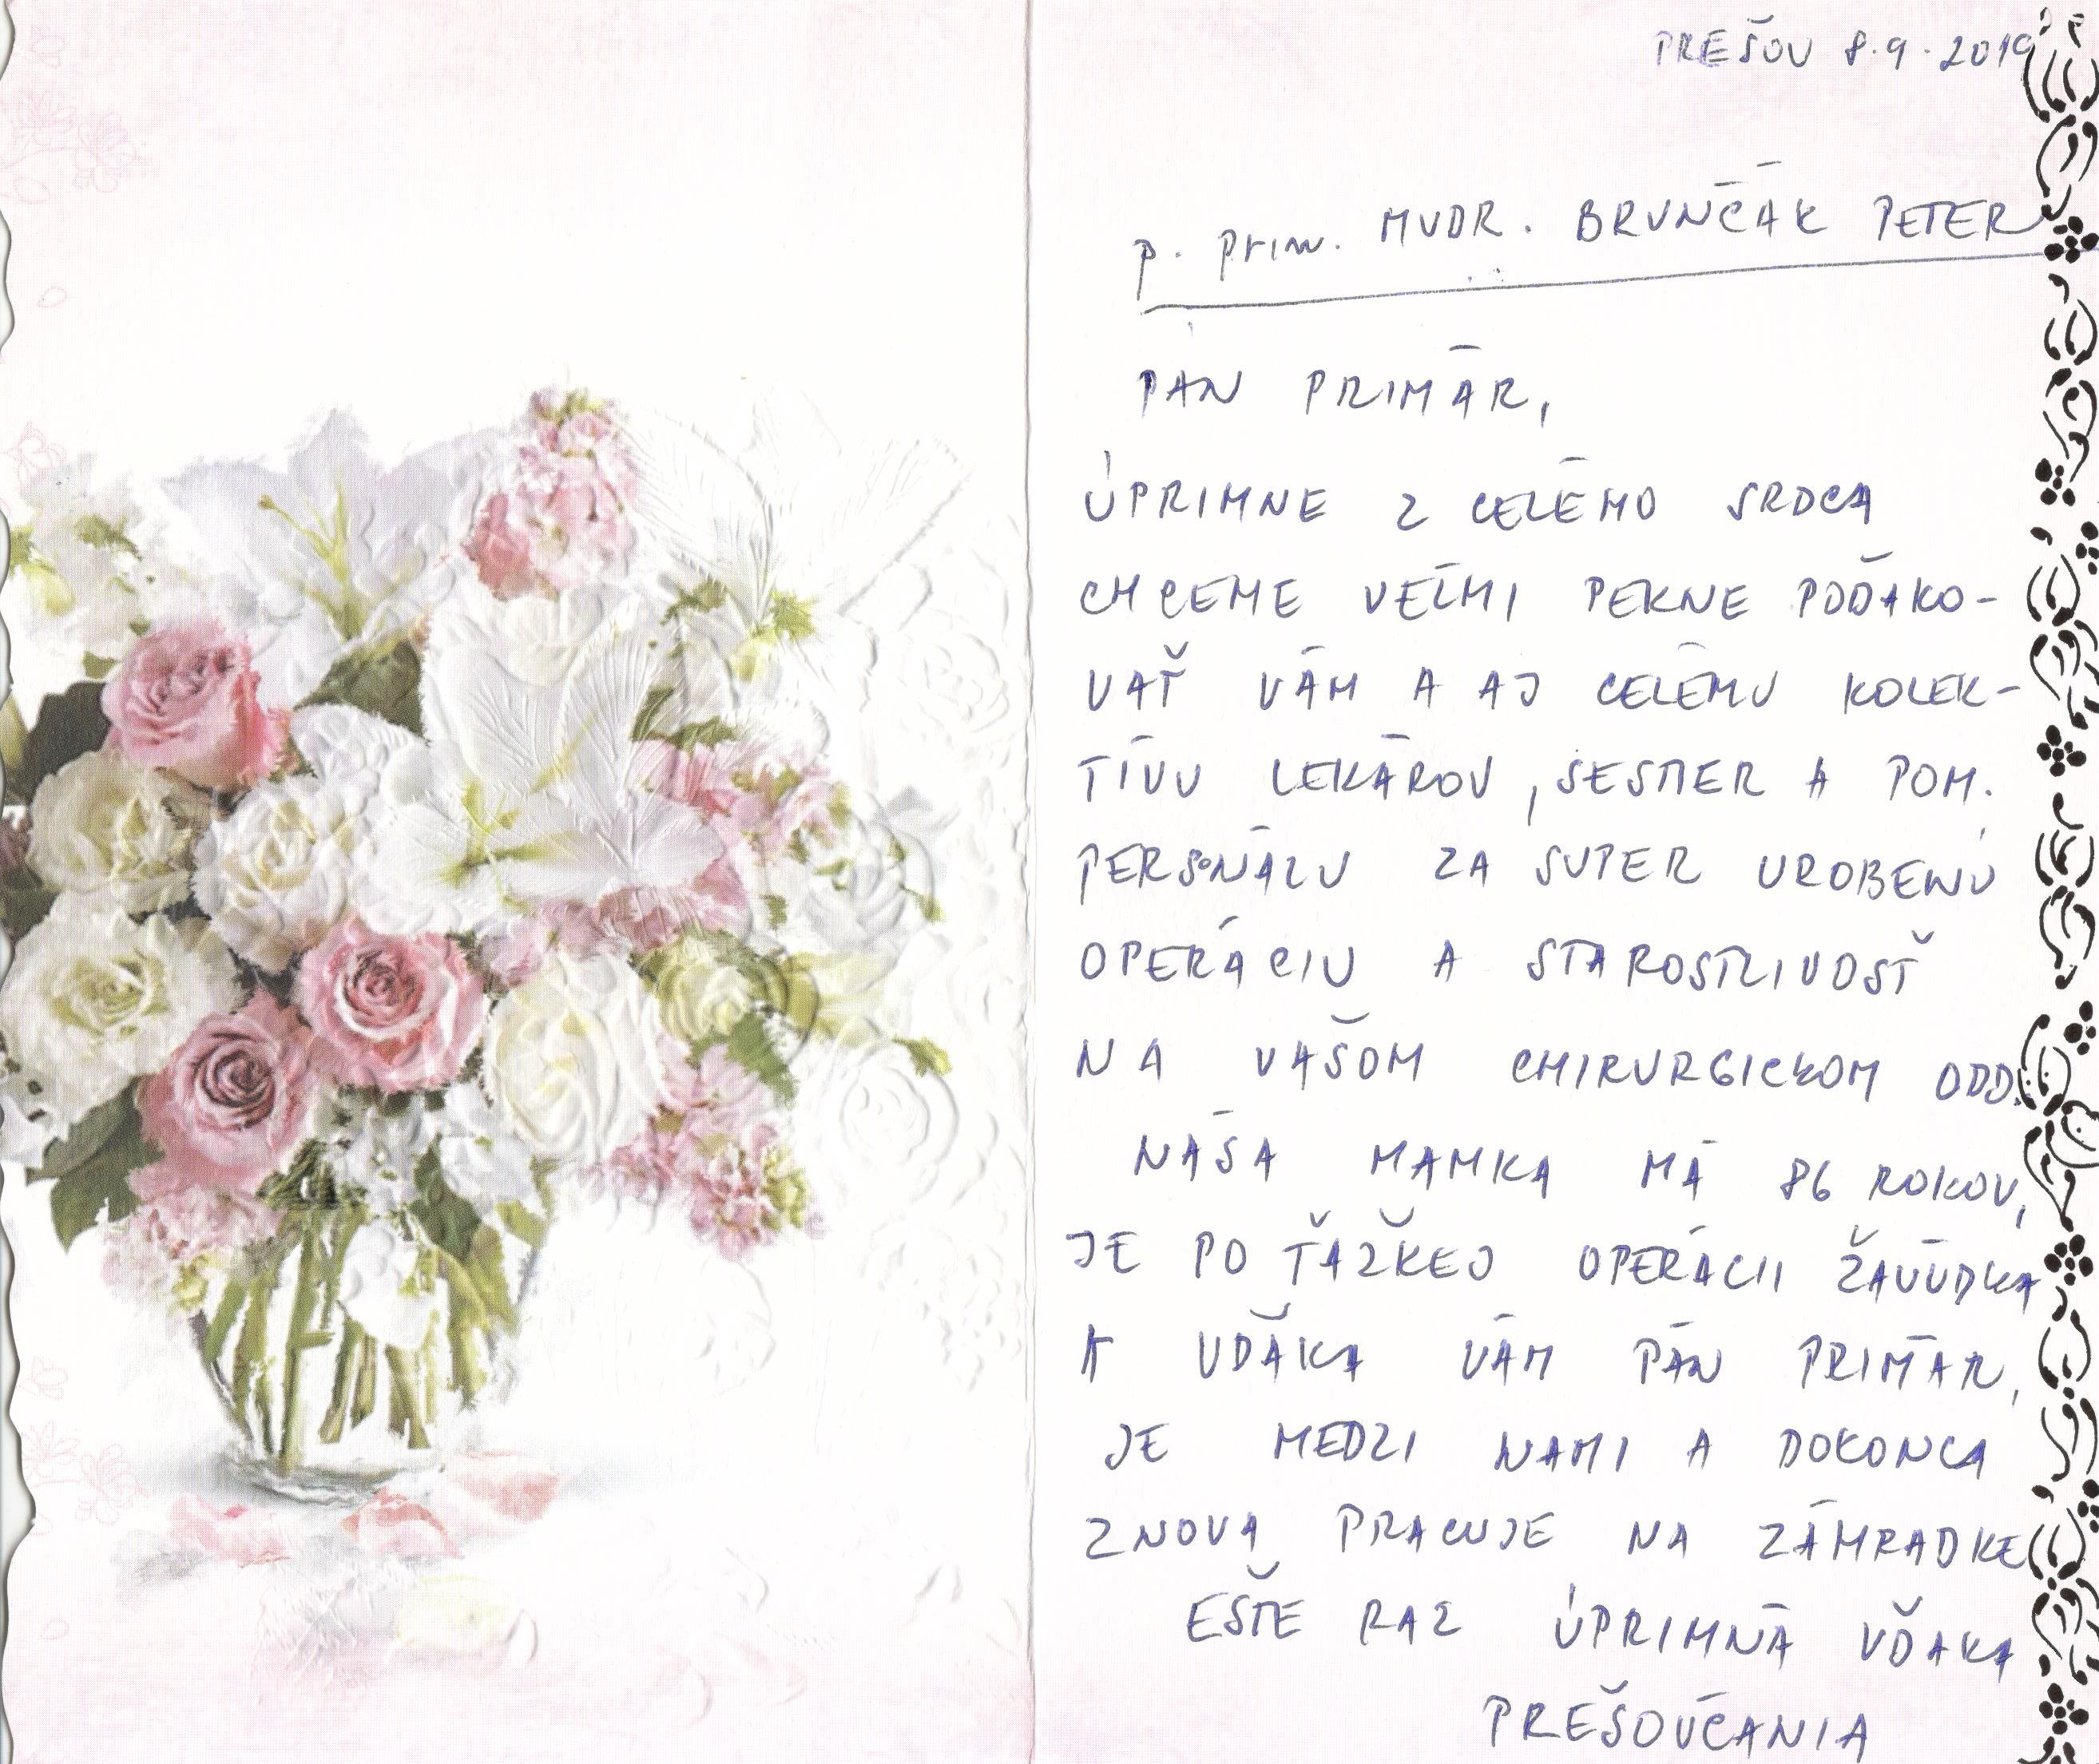 PREŠOV 8.9.2019
p. prim. MUDR. BRUNČÁK PETER
PÁN PRIMÁR,
ÚPRIMNE Z CELÉHO SRDCA
CHCEME VEĽMI PEKNE POĎAKO-
VAŤ VÁM A AJ CELÉMU KOLEK-
TÍVU LEKÁROV, SESTIER A POM.
PERSONÁLU ZA SUPER UROBENÚ
OPERÁCIU A STAROSTLIVOSŤ
NA VAŠOM CHIRURGICKOM ODD.
NÁŠA MAMKA MÁ 86 ROKOV,
JE PO ŤAŽKEJ OPERÁCII ŽALÚDKA
A VĎAKA VÁM PÁN PRIMÁR,
JE MEDZI NAMI A DOKONCA
ZNOVA PRACUJE NA ZÁHRADKE
EŠTE RAZ ÚPRIMNÁ VĎAKA
PREŠOVČANIA